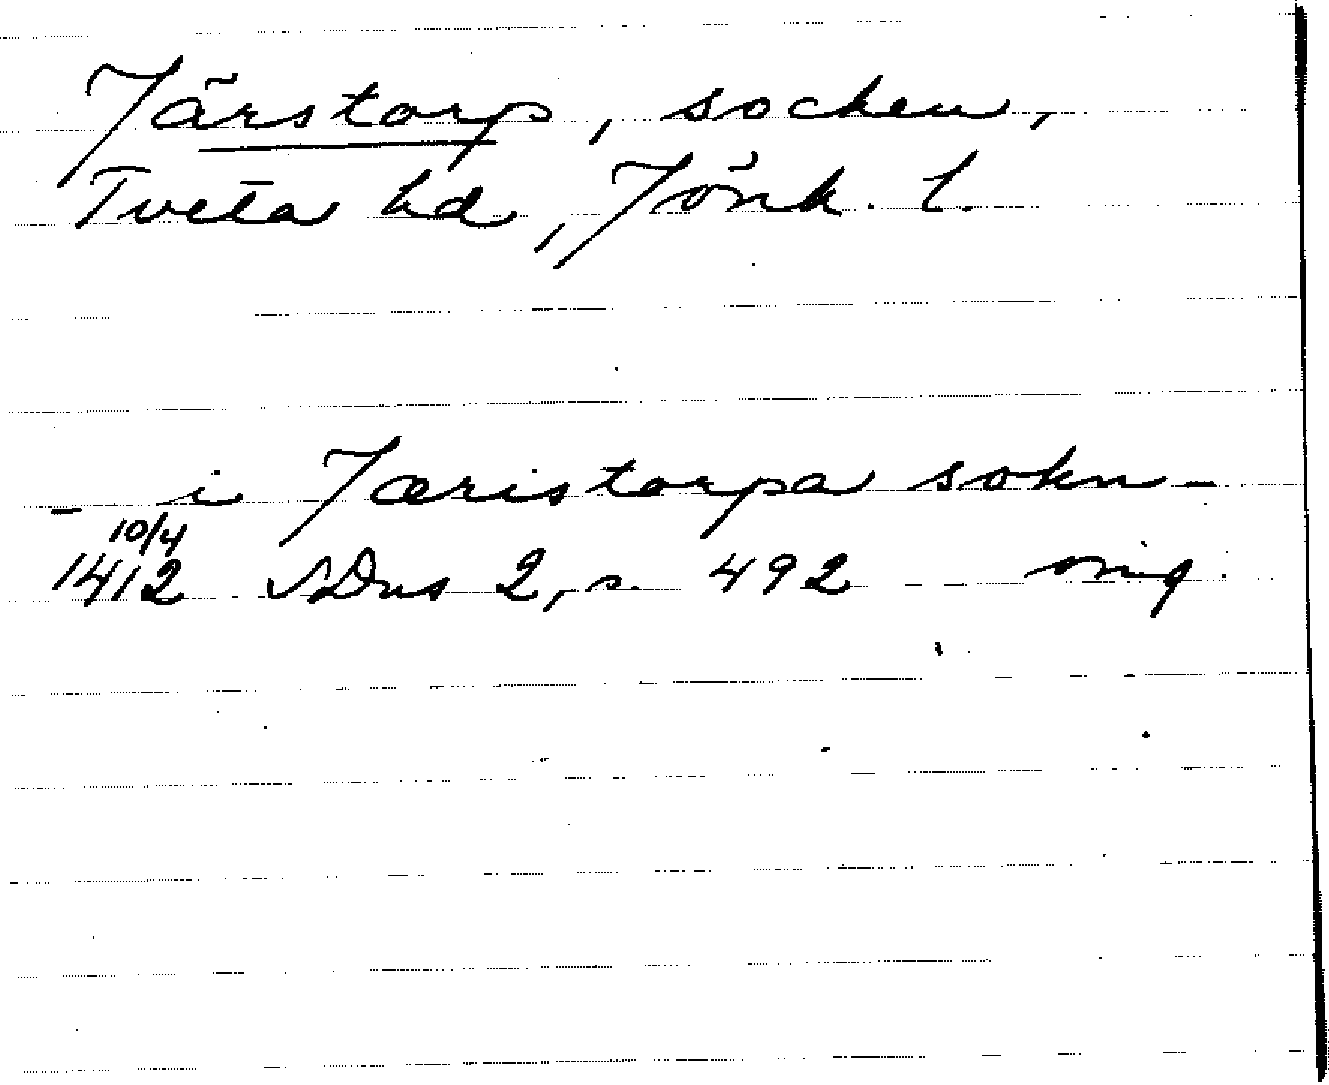 Järstorp, socken,
Tveta hd, Jönk. l.
_ i Jæristorpa sokn _
10/4
1412 SDns 2, s. 492 orig